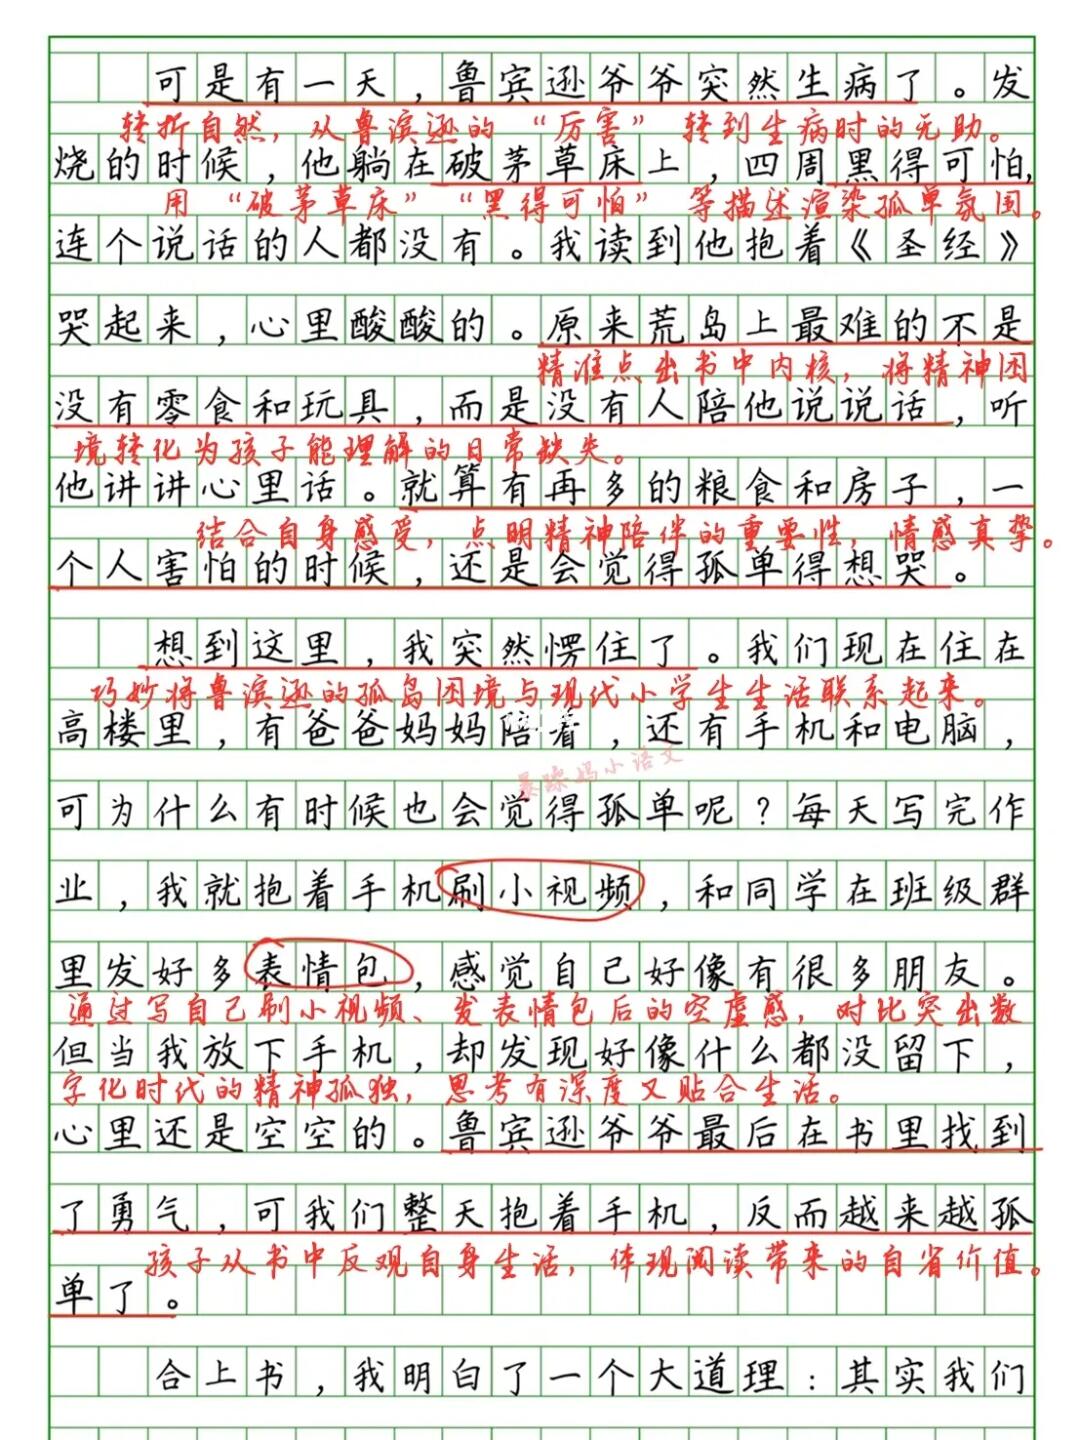 可是有一天，鲁宾逊爷爷突然生病了。发
转折自然，从鲁滨逊的“厉害”转到生病时的无助。
烧的时候，他躺在破茅草床上，四周黑得可怕，
用“破茅草床”“黑得可怕”等描述渲染孤单氛围。
连个说话的人都没有。我读到他抱着《圣经》
哭起来，心里酸酸的。原来荒岛上最难的不是
精准点出书中内核，将精神困
没有零食和玩具，而是没有人陪他说说话，听
境转化为孩子能理解的日常缺失。
他讲讲心里话。就算有再多的粮食和房子，一
结合自身感受，点明精神陪伴的重要性，情感真挚。
个人害怕的时候，还是会觉得孤单得想哭。
想到这里，我突然愣住了。我们现在住在
巧妙将鲁滨逊的孤岛困境与现代小学生生活联系起来。
高楼里，有爸爸妈妈陪着，还有手机和电脑，
暴躁妈小语文
可为什么有时候也会觉得孤单呢？每天写完作
业，我就抱着手机刷小视频，和同学在班级群
里发好多表情包，感觉自己好像有很多朋友。
通过写自己刷小视频、发表情包后的空虚感，对比突出数
但当我放下手机，却发现好像什么都没留下，
字化时代的精神孤独，思考有深度又贴合生活。
心里还是空空的。鲁宾逊爷爷最后在书里找到
了勇气，可我们整天抱着手机，反而越来越孤
孩子从书中反观自身生活，体现阅读带来的自省价值。
单了。
合上书，我明白了一个大道理：其实我们